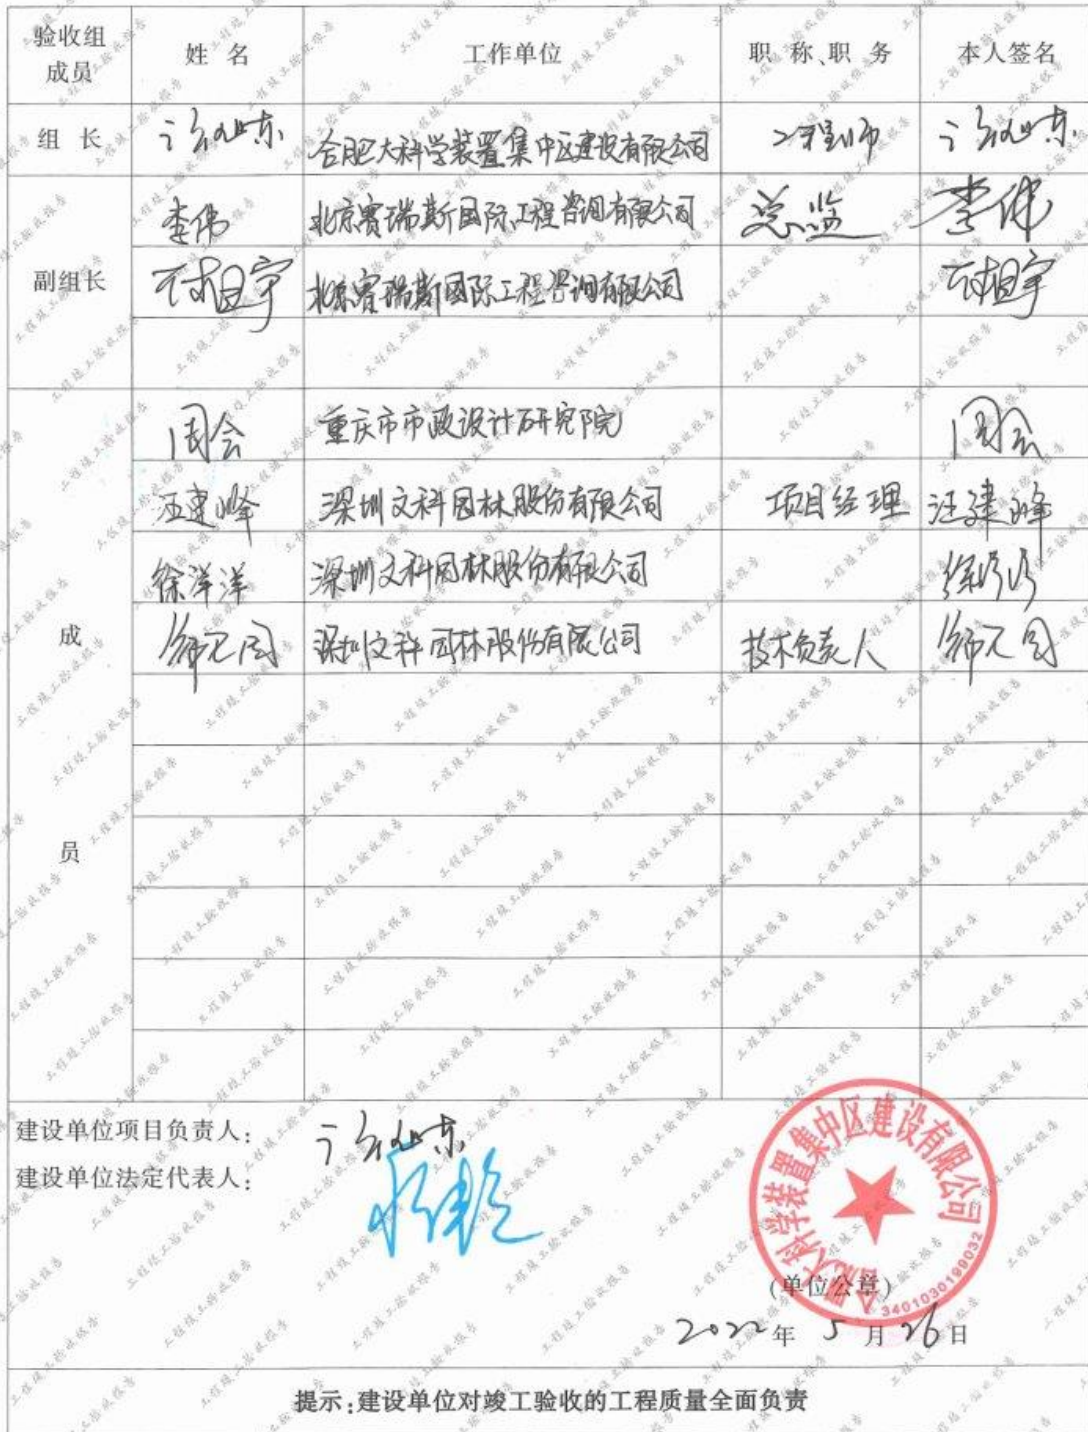 验收组成员 姓 名 工作单位 职 称、职 务 本人签名
组 长 合肥大科学装置集中区建设有限公司 工程师
李伟 北京赛瑞斯国际工程咨询有限公司 总监 李伟
副组长 北京赛瑞斯国际工程咨询有限公司
周会 重庆市市政设计研究院 周会
汪建峰 深圳文科园林股份有限公司 项目经理 汪建峰
徐洋洋 深圳文科园林股份有限公司
成 深圳文科园林股份有限公司 技术负责人
员
建设单位项目负责人:
建设单位法定代表人:
合肥大科学装置集中区建设有限公司
3401030199032
(单位公章)
2022年 5 月 26 日
提示:建设单位对竣工验收的工程质量全面负责
工程竣工验收报告